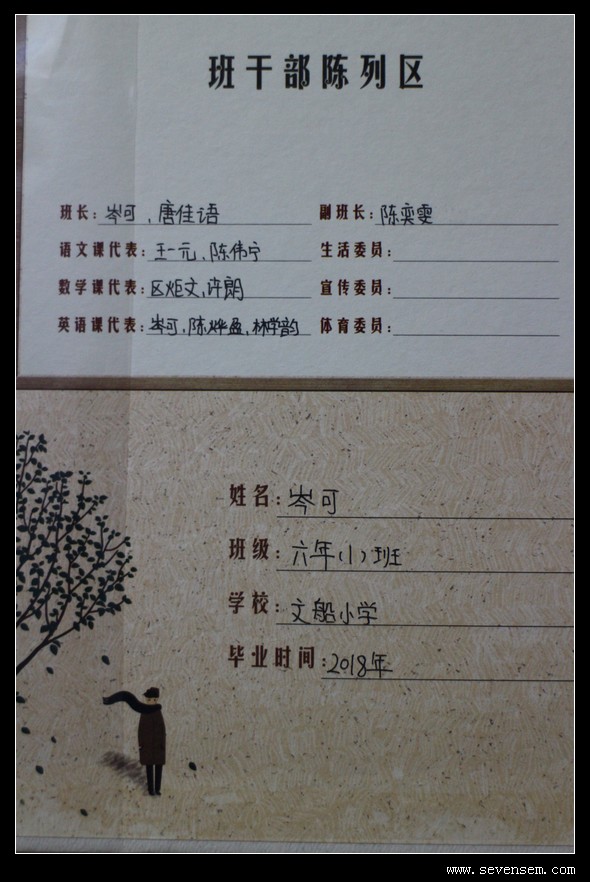 班干部陈列区
班长:岑可,唐佳语 副班长:陈奕雯
语文课代表:王一元,陈伟宁 生活委员:
数学课代表:区炬文,许朗 宣传委员:
英语课代表:岑可,陈烨盈,林学韵 体育委员:
姓名:岑可
班级:六年(1)班
学校:文船小学
毕业时间:2018年
www.sevensem.com